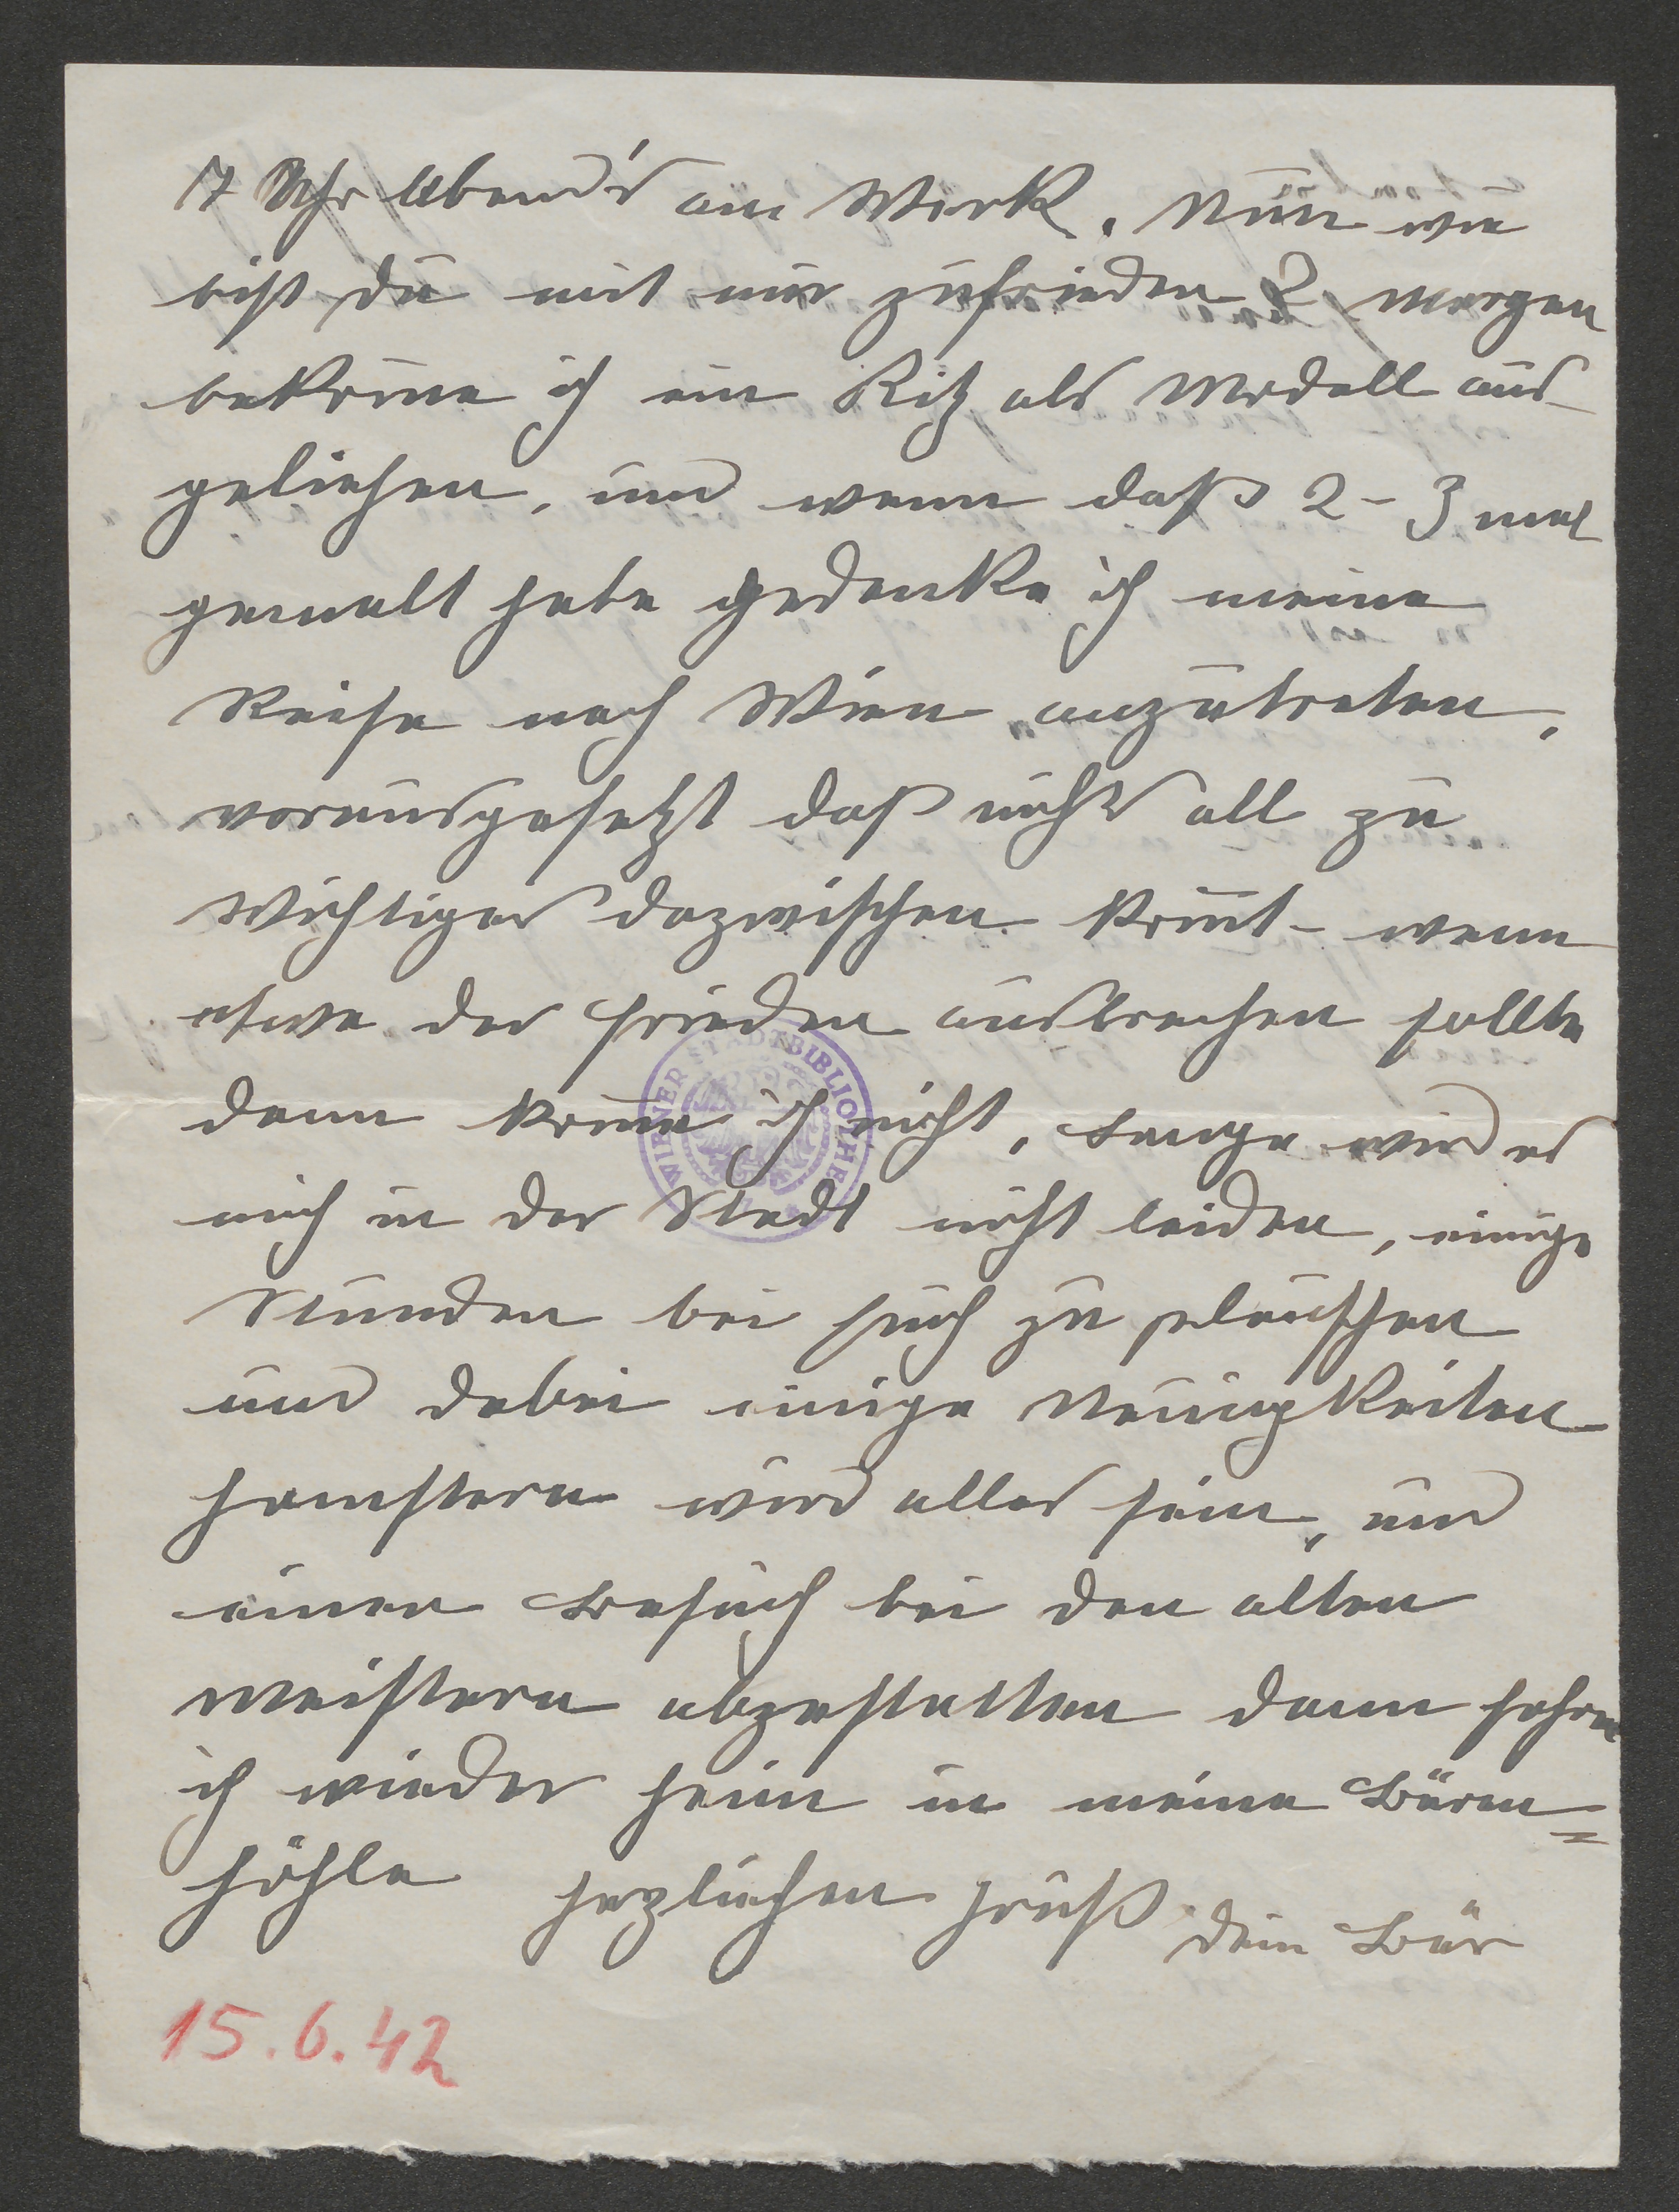 7 Uhr Abend's am Werk. Nun wie
bist du mit mir zufrieden? Morgen
bekome ich ein Kitz als Modell aus-
geliehen, und wenn daß 2-3 mal
gemalt habe gedenke ich meine
Reise nach Wien anzutreten,
vorausgesetzt daß nichts all zu
Wichtiges dazwischen komt - wenn
etwa der Frieden ausbrechen sollte
dann kome ich nicht. Lange wird es
mich in der Stadt nicht leiden, einige
Stunden bei Euch zu plauschen
und dabei einige Neuigkeiten
hamstern wird alles sein, und
einen Besuch bei den alten
Meistern abzestatten dann fahre
ich wieder heim in meine Bären=
höhle herzlichen Gruß Dein Bär
WIENER STADTBIBLIOTHEK
15.6.42